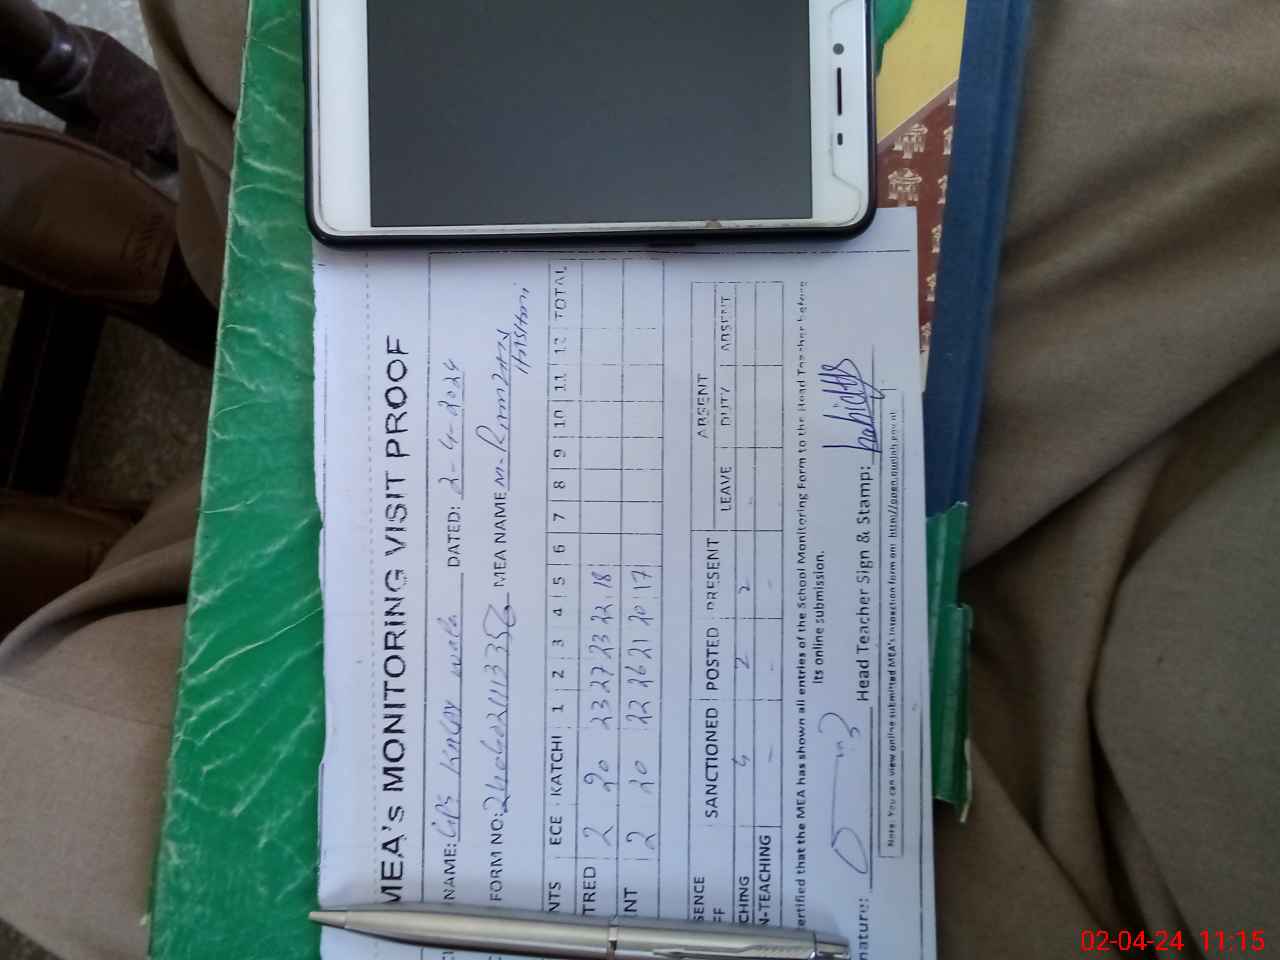 MEA's MONITORING VISIT PROOF
NAME: GPS DATED: 2-4-2024
FORM NO: MEA NAME M-Ramzan
NTS ECE KATCHI 1 2 3 4 5 6 7 8 9 10 11 12 TOTAL
TRED 2 20 23 27 23 22 18
NT 2 20 22 26 21 20 17
SENCE SANCTIONED POSTED PRESENT ABSENT
FF LEAVE DUTY ABSENT
CHING 4 2 2
N-TEACHING - - -
ertified that the MEA has shown all entries of the School Monitoring Form to the Head Teacher before
its online submission.
nature: Head Teacher Sign & Stamp:
Note: You can view online submitted MEA's inspection form on: http://open.punjab.gov.pk
02-04-24 11:15